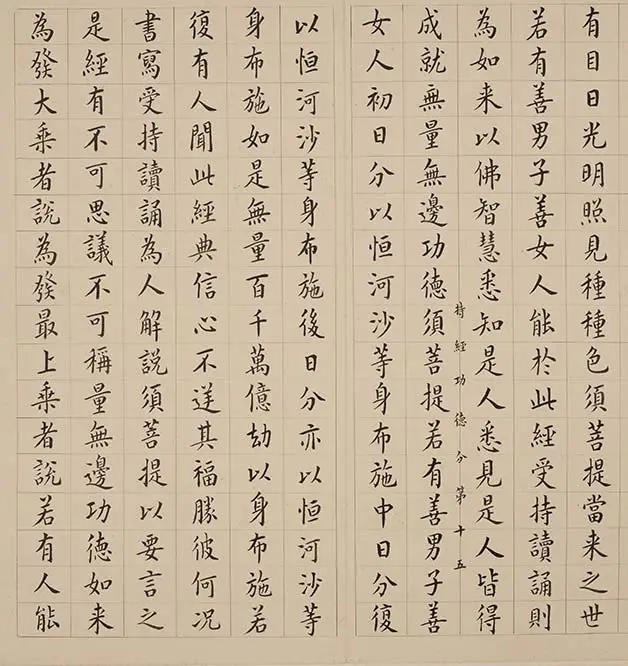 有目日光明照見種種色須菩提當来之世
若有善男子善女人能於此經受持讀誦則
為如来以佛智慧悉知是人悉見是人皆得
持經功德分第十五
成就無量無邊功德須菩提若有善男子善
女人初日分以恒河沙等身布施中日分復
以恒河沙等身布施後日分亦以恒河沙等
身布施如是無量百千萬億劫以身布施若
復有人聞此經典信心不逆其福勝彼何況
書寫受持讀誦為人解說須菩提以要言之
是經有不可思議不可稱量無邊功德如来
為發大乘者說為發最上乘者說若有人能